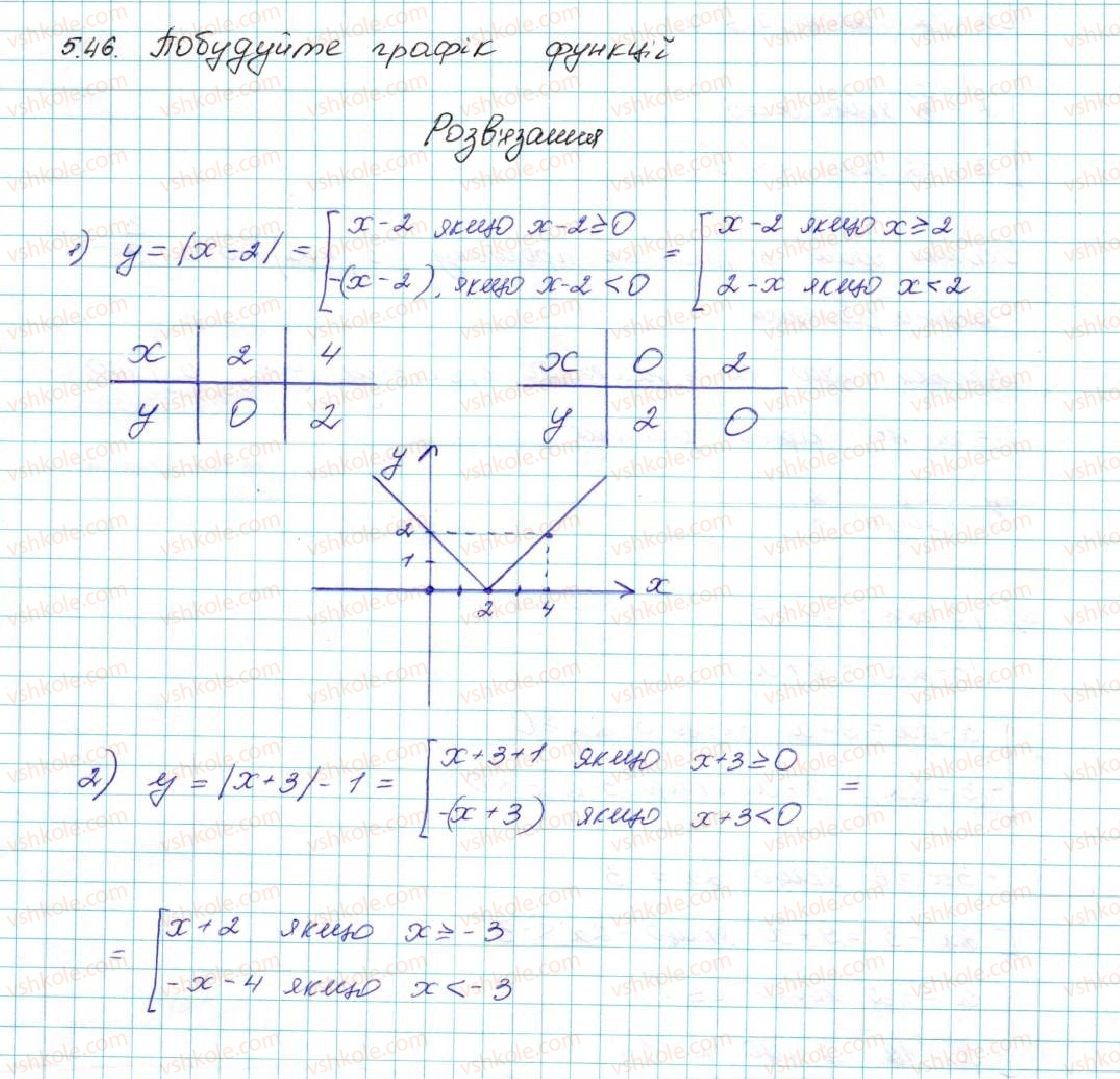 5.46. Побудуйте графік функцій
Розв'язання
1) y = |x - 2| = [ x - 2 якщо x - 2 ≥ 0 = [ x - 2 якщо x ≥ 2
-(x - 2), якщо x - 2 < 0 2 - x якщо x < 2
x 2 4 x 0 2
y 0 2 y 2 0
y
2
1
x
2 4
2) y = |x + 3| - 1 = [ x + 3 + 1 якщо x + 3 ≥ 0 =
-(x + 3) якщо x + 3 < 0
= [ x + 2 якщо x ≥ - 3
- x - 4 якщо x < - 3
vshkole.com